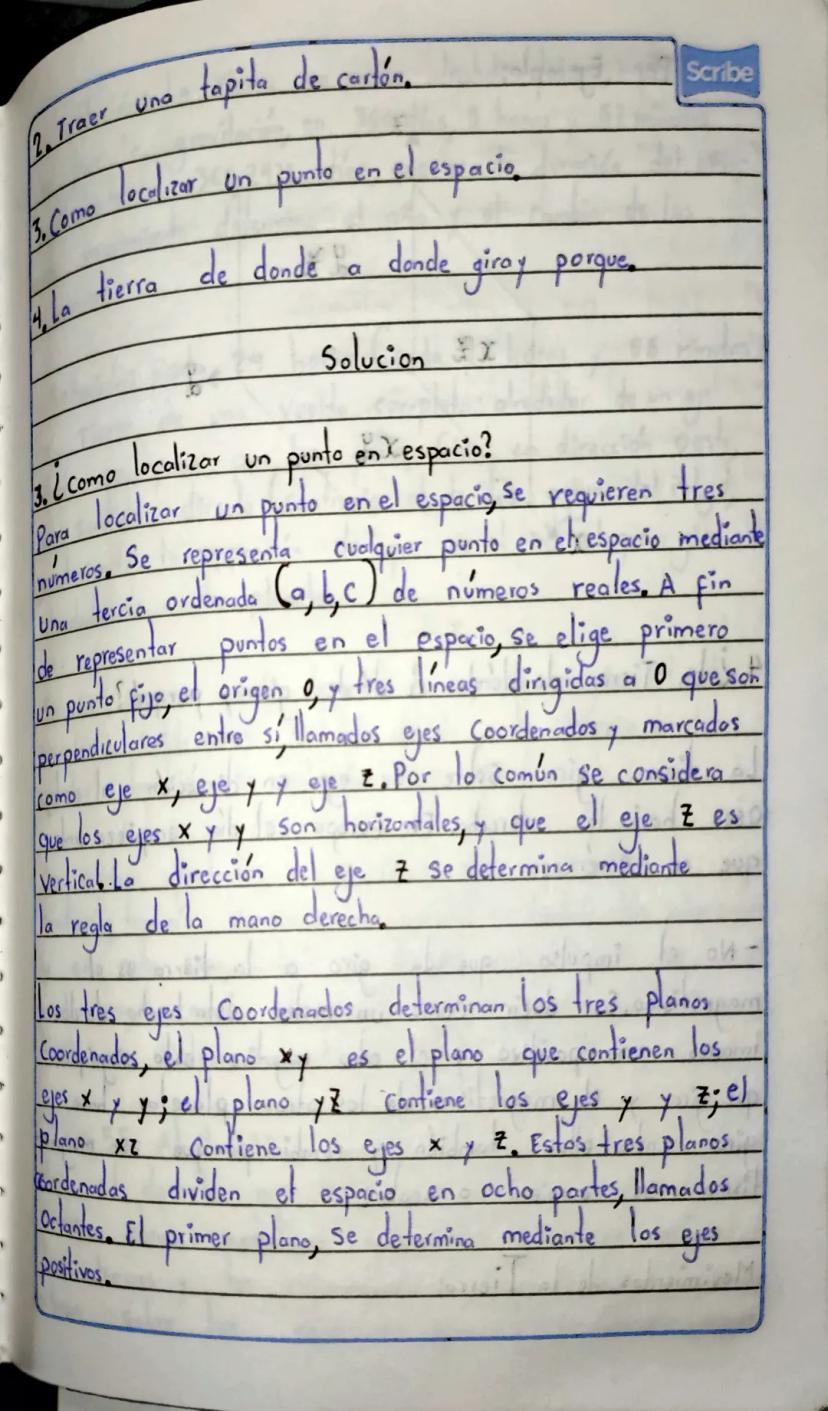 Scribe
2. Traer una tapita de cartón.
3. Como localizar un punto en el espacio.
4. La tierra de donde a donde gira y porque.
Solucion
3. ¿como localizar un punto en espacio?
Para localizar un punto en el espacio, se requieren tres
números. Se representa cualquier punto en el espacio mediante
una tercia ordenada (a, b, c) de números reales. A fin
de representar puntos en el espacio, se elige primero
un punto fijo, el origen 0, y tres líneas dirigidas a 0 que son
perpendiculares entre sí, llamados ejes Coordenados y marcados
como eje x, eje y y eje z. Por lo común se considera
que los ejes x y y son horizontales, y que el eje z es
vertical. La dirección del eje z se determina mediante
la regla de la mano derecha.
Los tres ejes Coordenados determinan los tres planos
Coordenados, el plano xy es el plano que contienen los
ejes x y y; el plano yz contiene los ejes y y z; el
plano xz contiene los ejes x y z. Estos tres planos
cordenadas dividen el espacio en ocho partes, llamados
Octantes. El primer plano, se determina mediante los ejes
positivos.